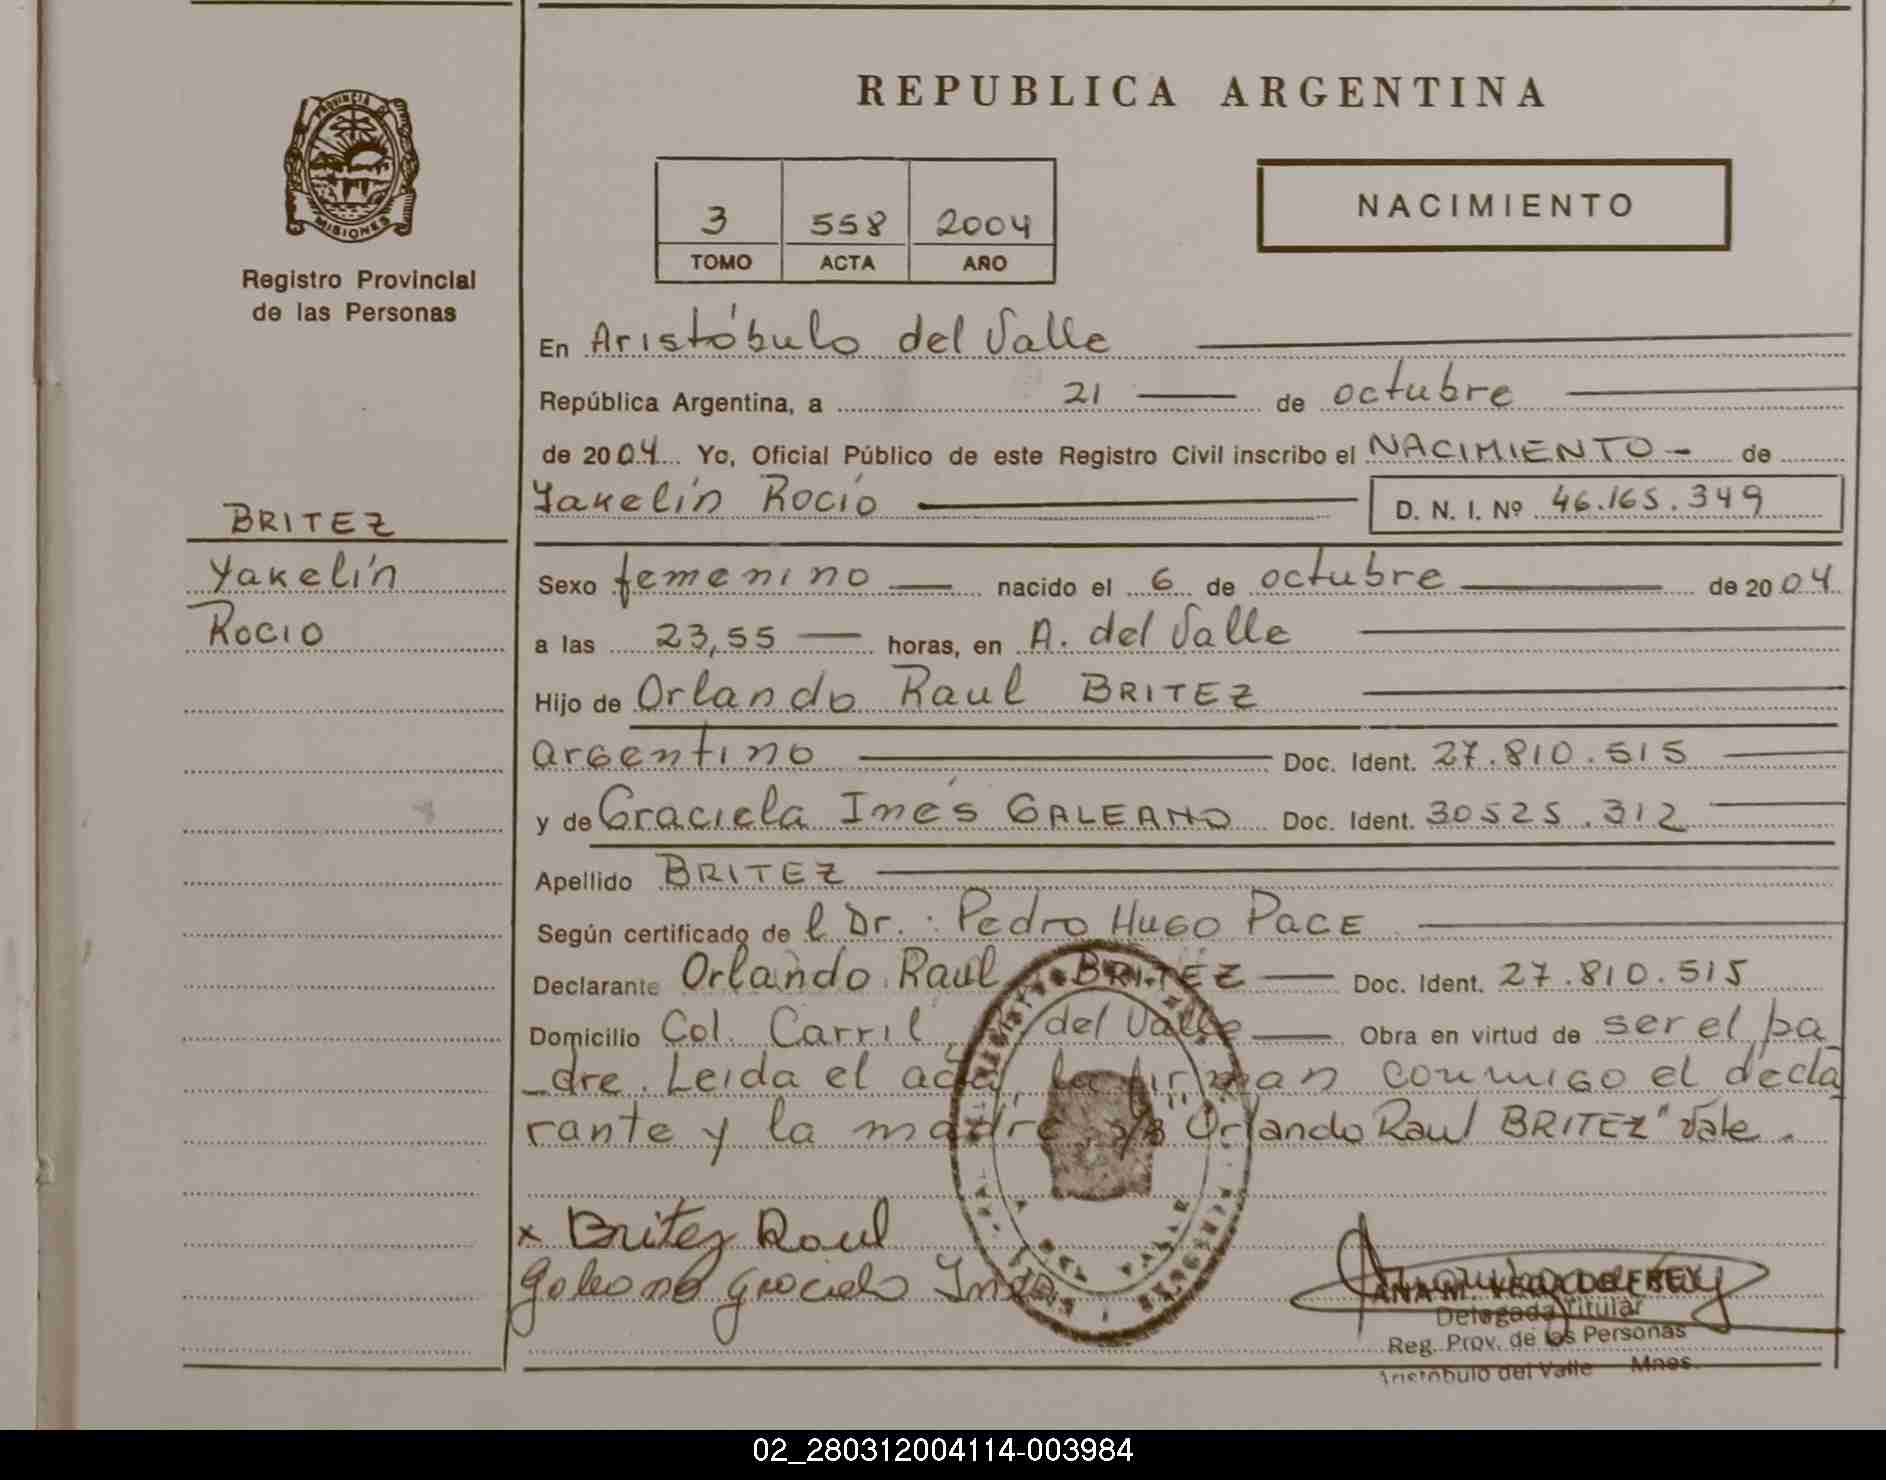 REPUBLICA ARGENTINA
PROVINCIA DE
MISIONES
Registro Provincial
de las Personas
3 558 2004
TOMO ACTA AÑO
NACIMIENTO
En Aristóbulo del Valle
República Argentina, a 21 de octubre
de 2004 Yo, Oficial Público de este Registro Civil inscribo el NACIMIENTO - de
Yakelín Rocío D. N. I. Nº 46.165.349
BRITEZ
Yakelín
Rocio
Sexo femenino nacido el 6 de octubre de 2004
a las 23,55 horas, en A. del Valle
Hijo de Orlando Raul BRITEZ
argentino Doc. Ident. 27.810.515
y de Graciela Inés GALEANO Doc. Ident. 30525.312
Apellido BRITEZ
Según certificado de l Dr.: Pedro Hugo PACE
Declarante Orlando Raul BRITEZ Doc. Ident. 27.810.515
Domicilio Col. Carril, del Valle Obra en virtud de ser el pa
_dre. Leida el acta, la firman conmigo el decla
rante y la madre. "Orlando Raul BRITEZ" Vale.
x Britez Raul
Galeano Graciela Ines
ANA M. VEGA DE FREY
Delegada Titular
Reg. Prov. de las Personas
Aristóbulo del Valle Mnes.
02_280312004114-003984